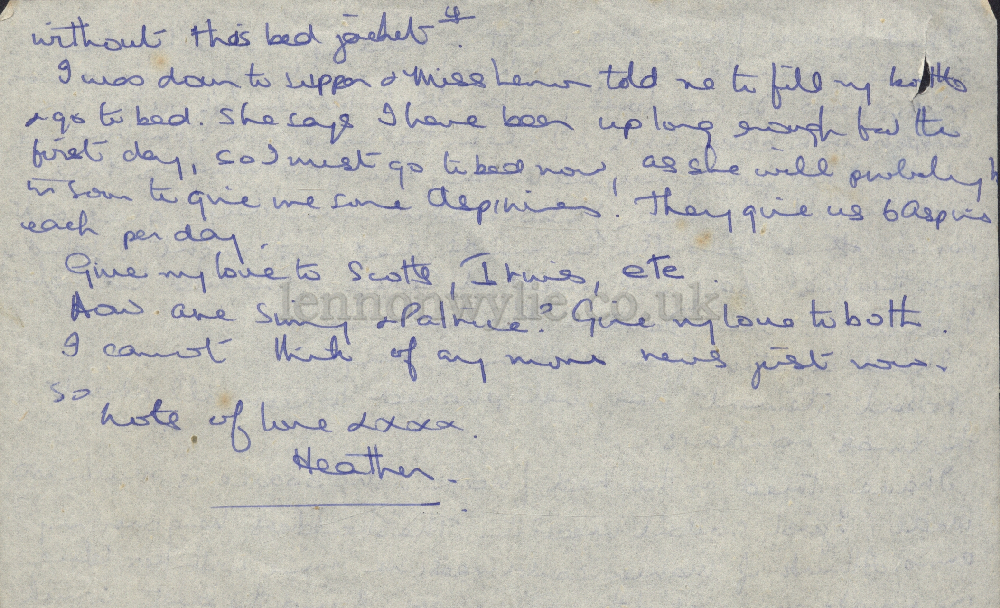 without this bed jacket".
I was down to supper & Miss told me to fill my bottle
& go to bed. She says I have been up long enough for the
first day, so I must go to bed now, as she will probably b
in soon to give me some Aspirines. They give us 6 Aspirins
each per day.
Give my love to Scotts, Irvines, etc.
How are Sinny & Patricia? Give my love to both.
I cannot think of any more news just now.
so
Lots of love xxxxx.
Heather.
lennonwylie.co.uk